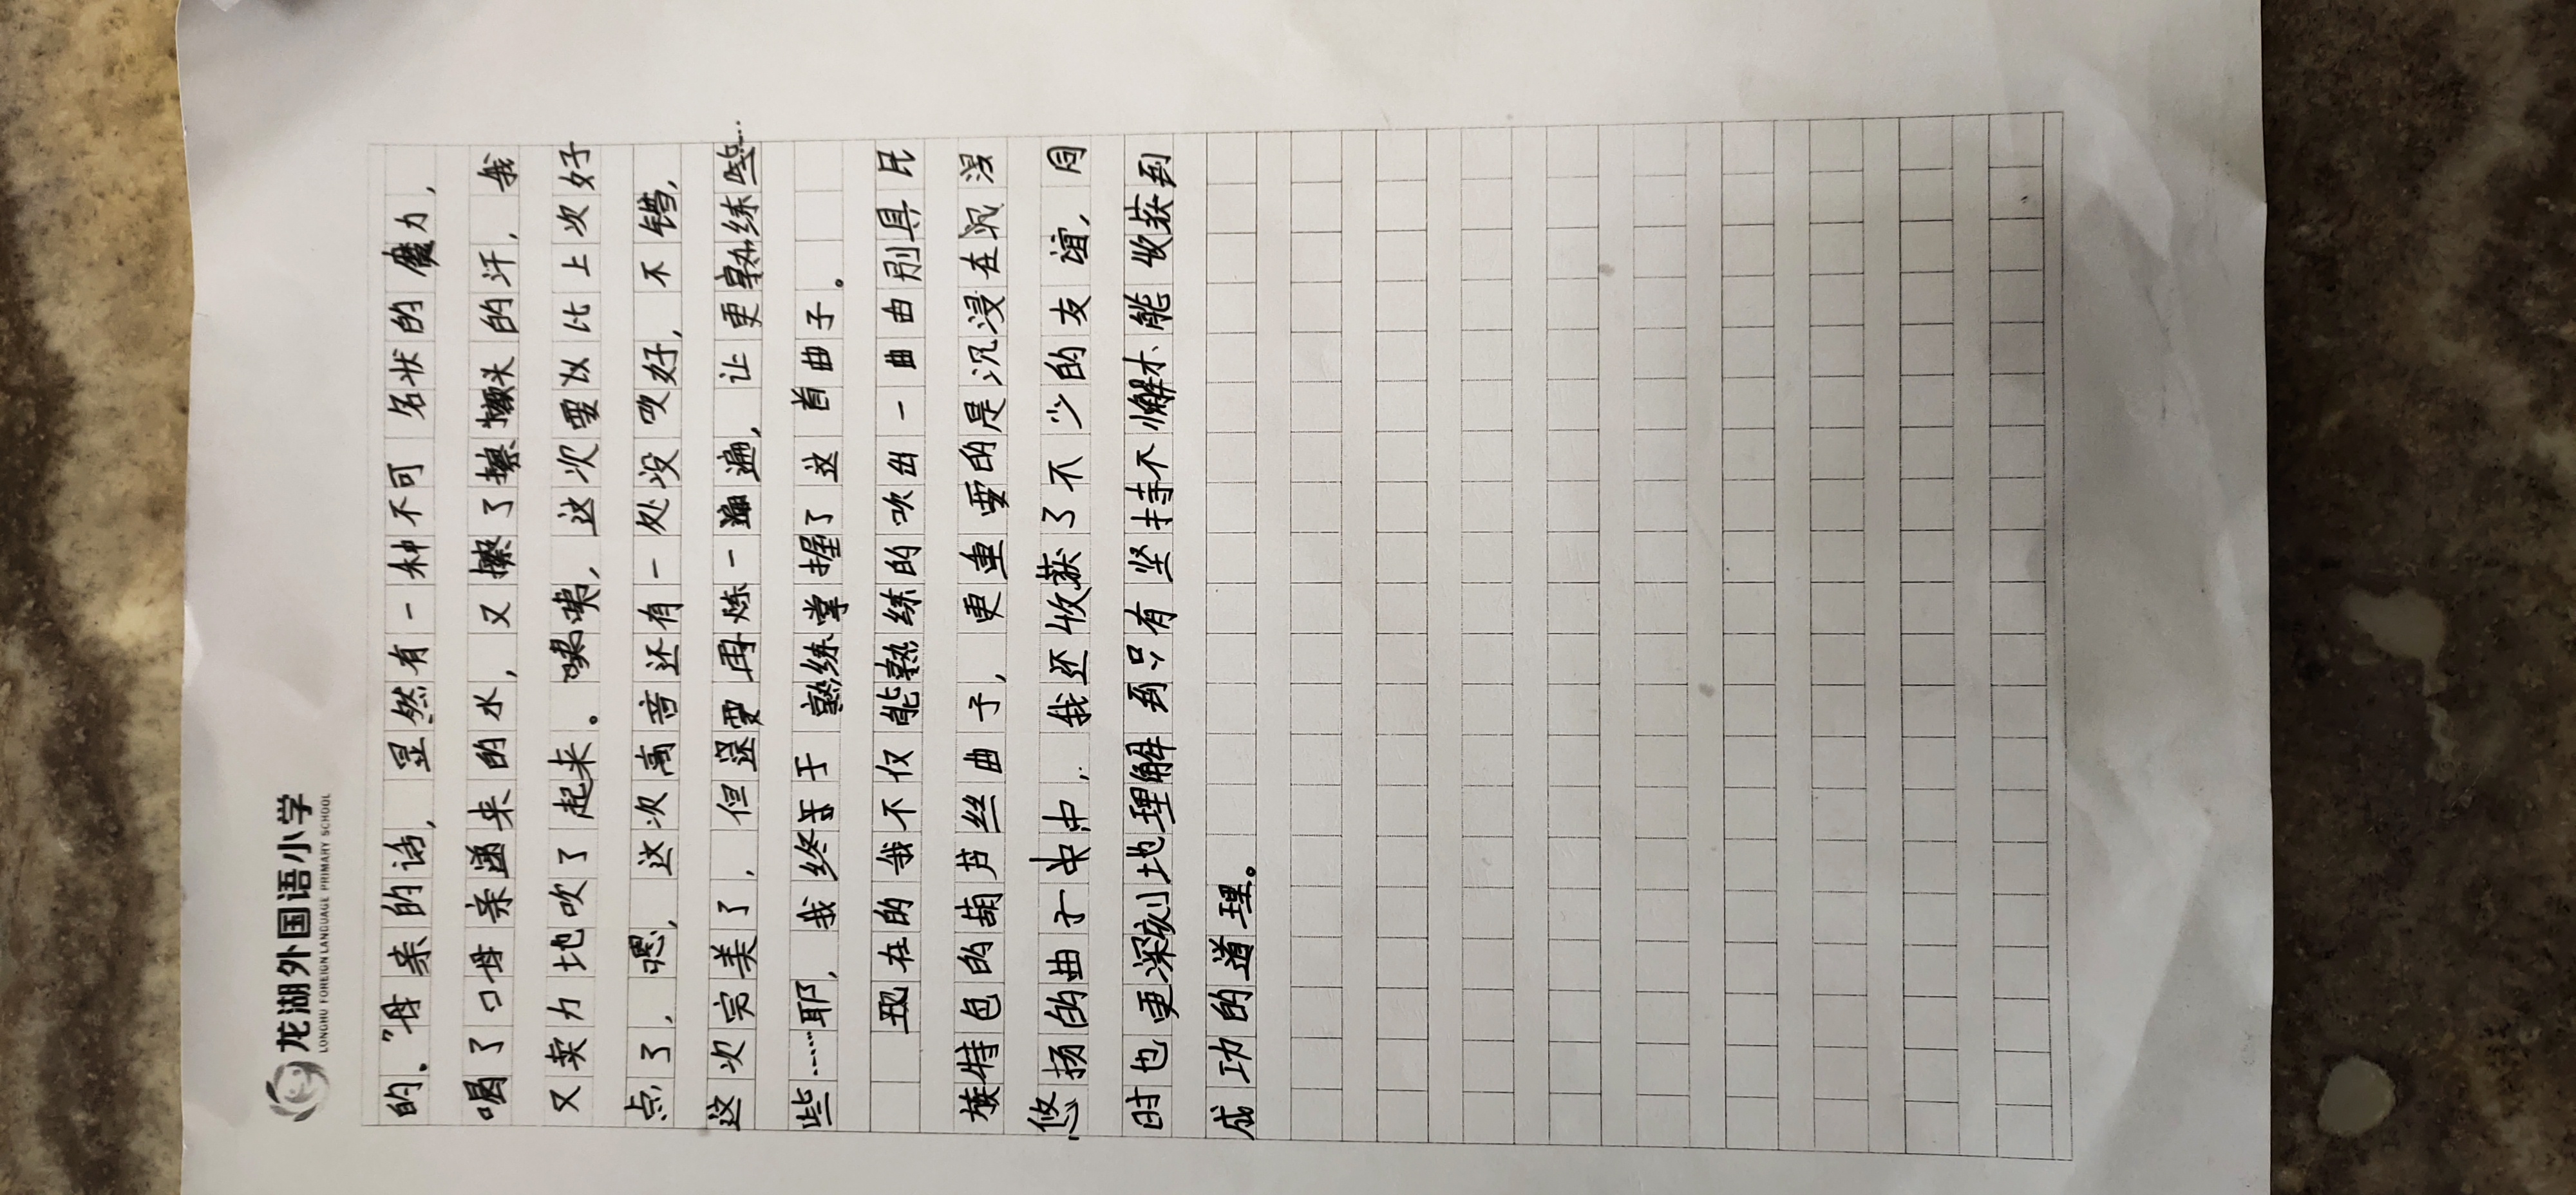 龙湖外国语小学
LONGHU FOREIGN LANGUAGE PRIMARY SCHOOL
的。”母亲的话，显然有一种不可名状的魔力，
喝了口母亲递来的水，又擦了擦额头的汗，我
又卖力地吹了起来。咦咦，这次要以比上次好
点了，嗯，这次高音还有一处没吹好，不错，
这次完美了，但还要再炼一遍遍，让更熟练些…
些……耶，我终于于熟练掌握了这首曲子。
现在的我不仅能熟练的吹出一曲曲别具民
族特包的葫芦丝曲子，更重要的是沉浸在氛湿
悠扬的曲子中中，我还收获了不少的友谊，同
时也更深刻地理解到只有坚持不懈才能收获到
成功的道理。